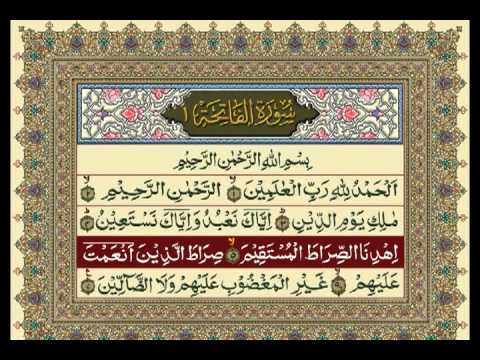 سُورَةُ الْفَاتِحَةِ ١
بِسْمِ اللهِ الرَّحْمٰنِ الرَّحِيْمِ
اَلْحَمْدُ لِلّٰهِ رَبِّ الْعٰلَمِيْنَ ۙ﴿۱﴾ الرَّحْمٰنِ الرَّحِيْمِ ۙ﴿۲﴾
مٰلِكِ يَوْمِ الدِّيْنِ ؕ﴿۳﴾ اِيَّاكَ نَعْبُدُ وَاِيَّاكَ نَسْتَعِيْنُ ؕ﴿۴﴾
اِهْدِنَا الصِّرَاطَ الْمُسْتَقِيْمَ ۙ﴿۵﴾ صِرَاطَ الَّذِيْنَ اَنْعَمْتَ
عَلَيْهِمْ ۙ﴿۶﴾ غَيْرِ الْمَغْضُوْبِ عَلَيْهِمْ وَلَا الضَّآلِّيْنَ ﴿۷﴾